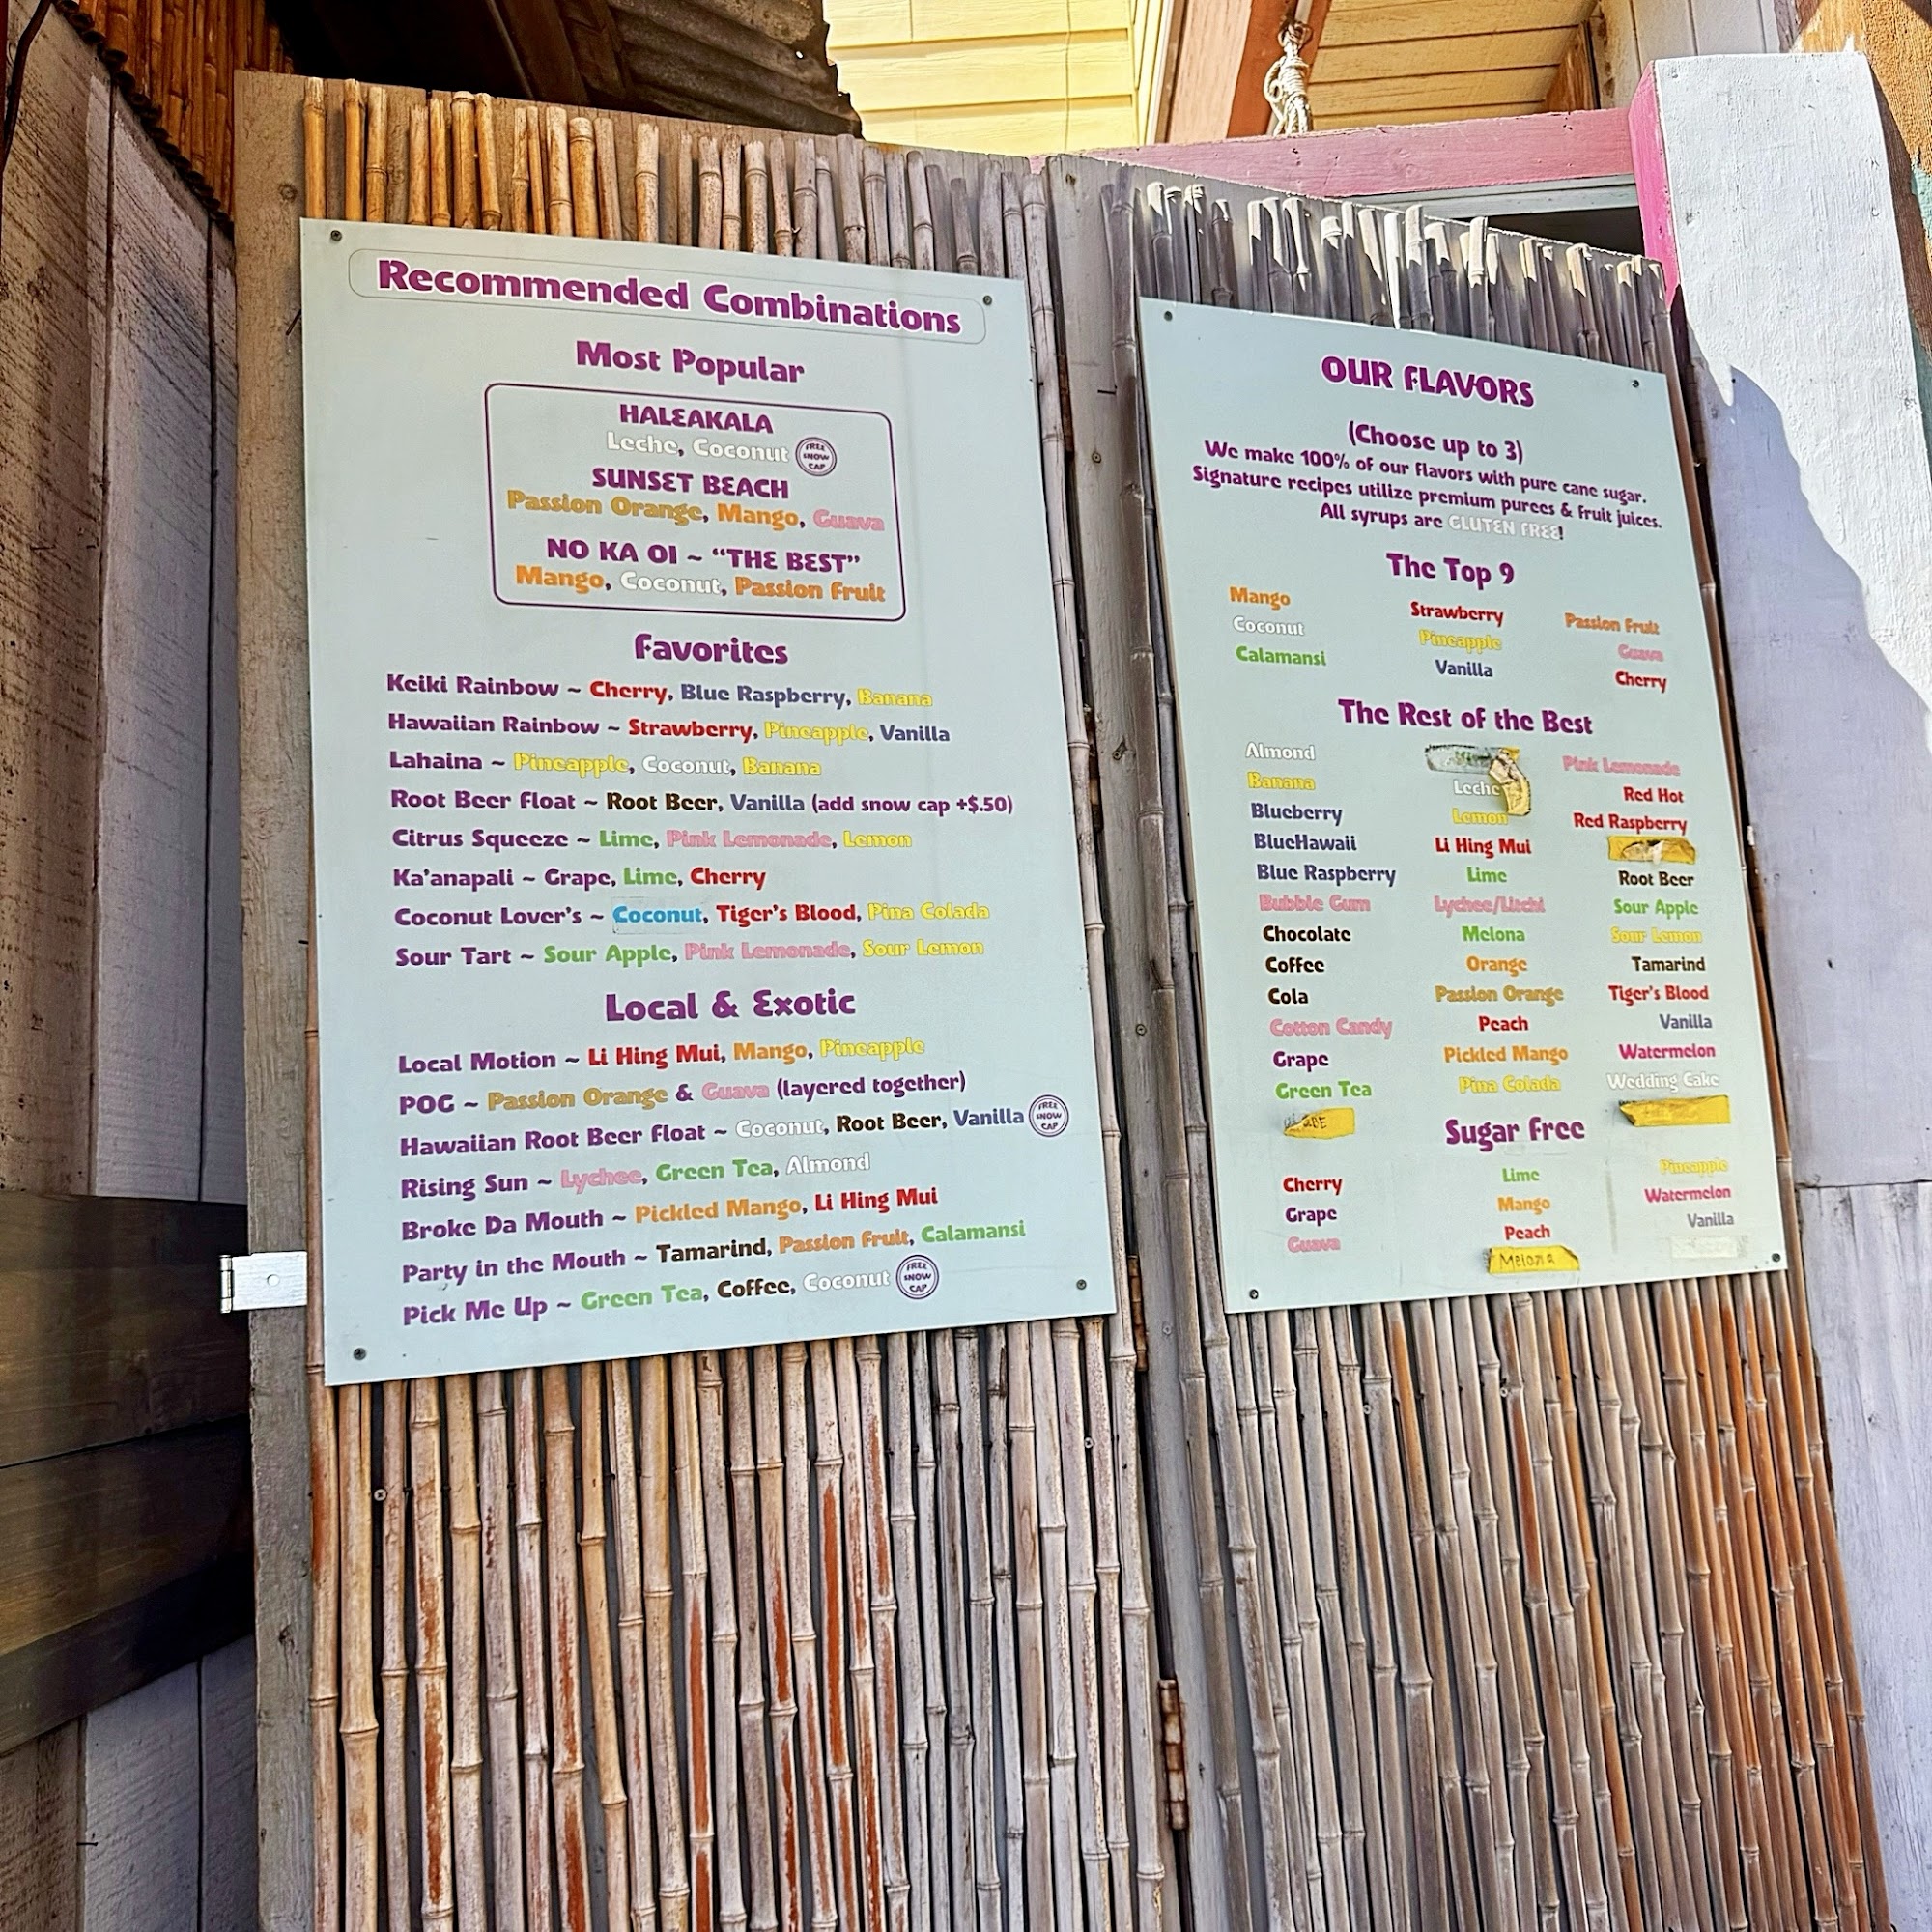 Recommended Combinations
Most Popular
HALEAKALA
Leche, Coconut FREE SNOW CAP
SUNSET BEACH
Passion Orange, Mango, Guava
NO KA OI ~ “THE BEST”
Mango, Coconut, Passion Fruit
Favorites
Keiki Rainbow ~ Cherry, Blue Raspberry, Banana
Hawaiian Rainbow ~ Strawberry, Pineapple, Vanilla
Lahaina ~ Pineapple, Coconut, Banana
Root Beer Float ~ Root Beer, Vanilla (add snow cap +$.50)
Citrus Squeeze ~ Lime, Pink Lemonade, Lemon
Ka'anapali ~ Grape, Lime, Cherry
Coconut Lover's ~ Coconut, Tiger's Blood, Pina Colada
Sour Tart ~ Sour Apple, Pink Lemonade, Sour Lemon
Local & Exotic
Local Motion ~ Li Hing Mui, Mango, Pineapple
POG ~ Passion Orange & Guava (layered together)
Hawaiian Root Beer Float ~ Coconut, Root Beer, Vanilla FREE SNOW CAP
Rising Sun ~ Lychee, Green Tea, Almond
Broke Da Mouth ~ Pickled Mango, Li Hing Mui
Party in the Mouth ~ Tamarind, Passion Fruit, Calamansi
Pick Me Up ~ Green Tea, Coffee, Coconut FREE SNOW CAP
OUR FLAVORS
(Choose up to 3)
We make 100% of our flavors with pure cane sugar.
Signature recipes utilize premium purees & fruit juices.
All syrups are GLUTEN FREE!
The Top 9
Mango
Coconut
Calamansi
Strawberry
Pineapple
Vanilla
Passion Fruit
Guava
Cherry
The Rest of the Best
Almond
Banana
Blueberry
BlueHawaii
Blue Raspberry
Bubble Gum
Chocolate
Coffee
Cola
Cotton Candy
Grape
Green Tea
Leche
Lemon
Li Hing Mui
Lime
Lychee/Litchi
Melona
Orange
Passion Orange
Peach
Pickled Mango
Pina Colada
Pink Lemonade
Red Hot
Red Raspberry
Root Beer
Sour Apple
Sour Lemon
Tamarind
Tiger's Blood
Vanilla
Watermelon
Wedding Cake
Sugar Free
Cherry
Grape
Guava
Lime
Mango
Peach
Melona
Pineapple
Watermelon
Vanilla